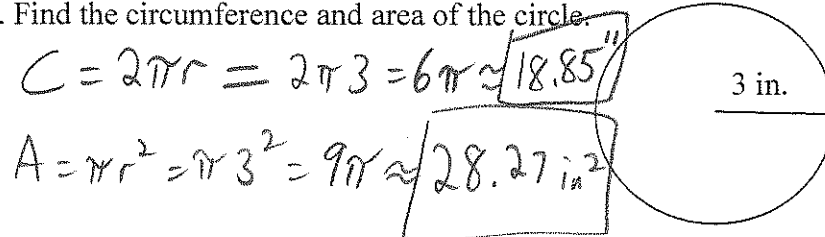 . Find the circumference and area of the circle.
C = 2πr = 2π3 = 6π ≈ 18.85"
3 in.
A = πr² = π3² = 9π ≈ 28.27 in²